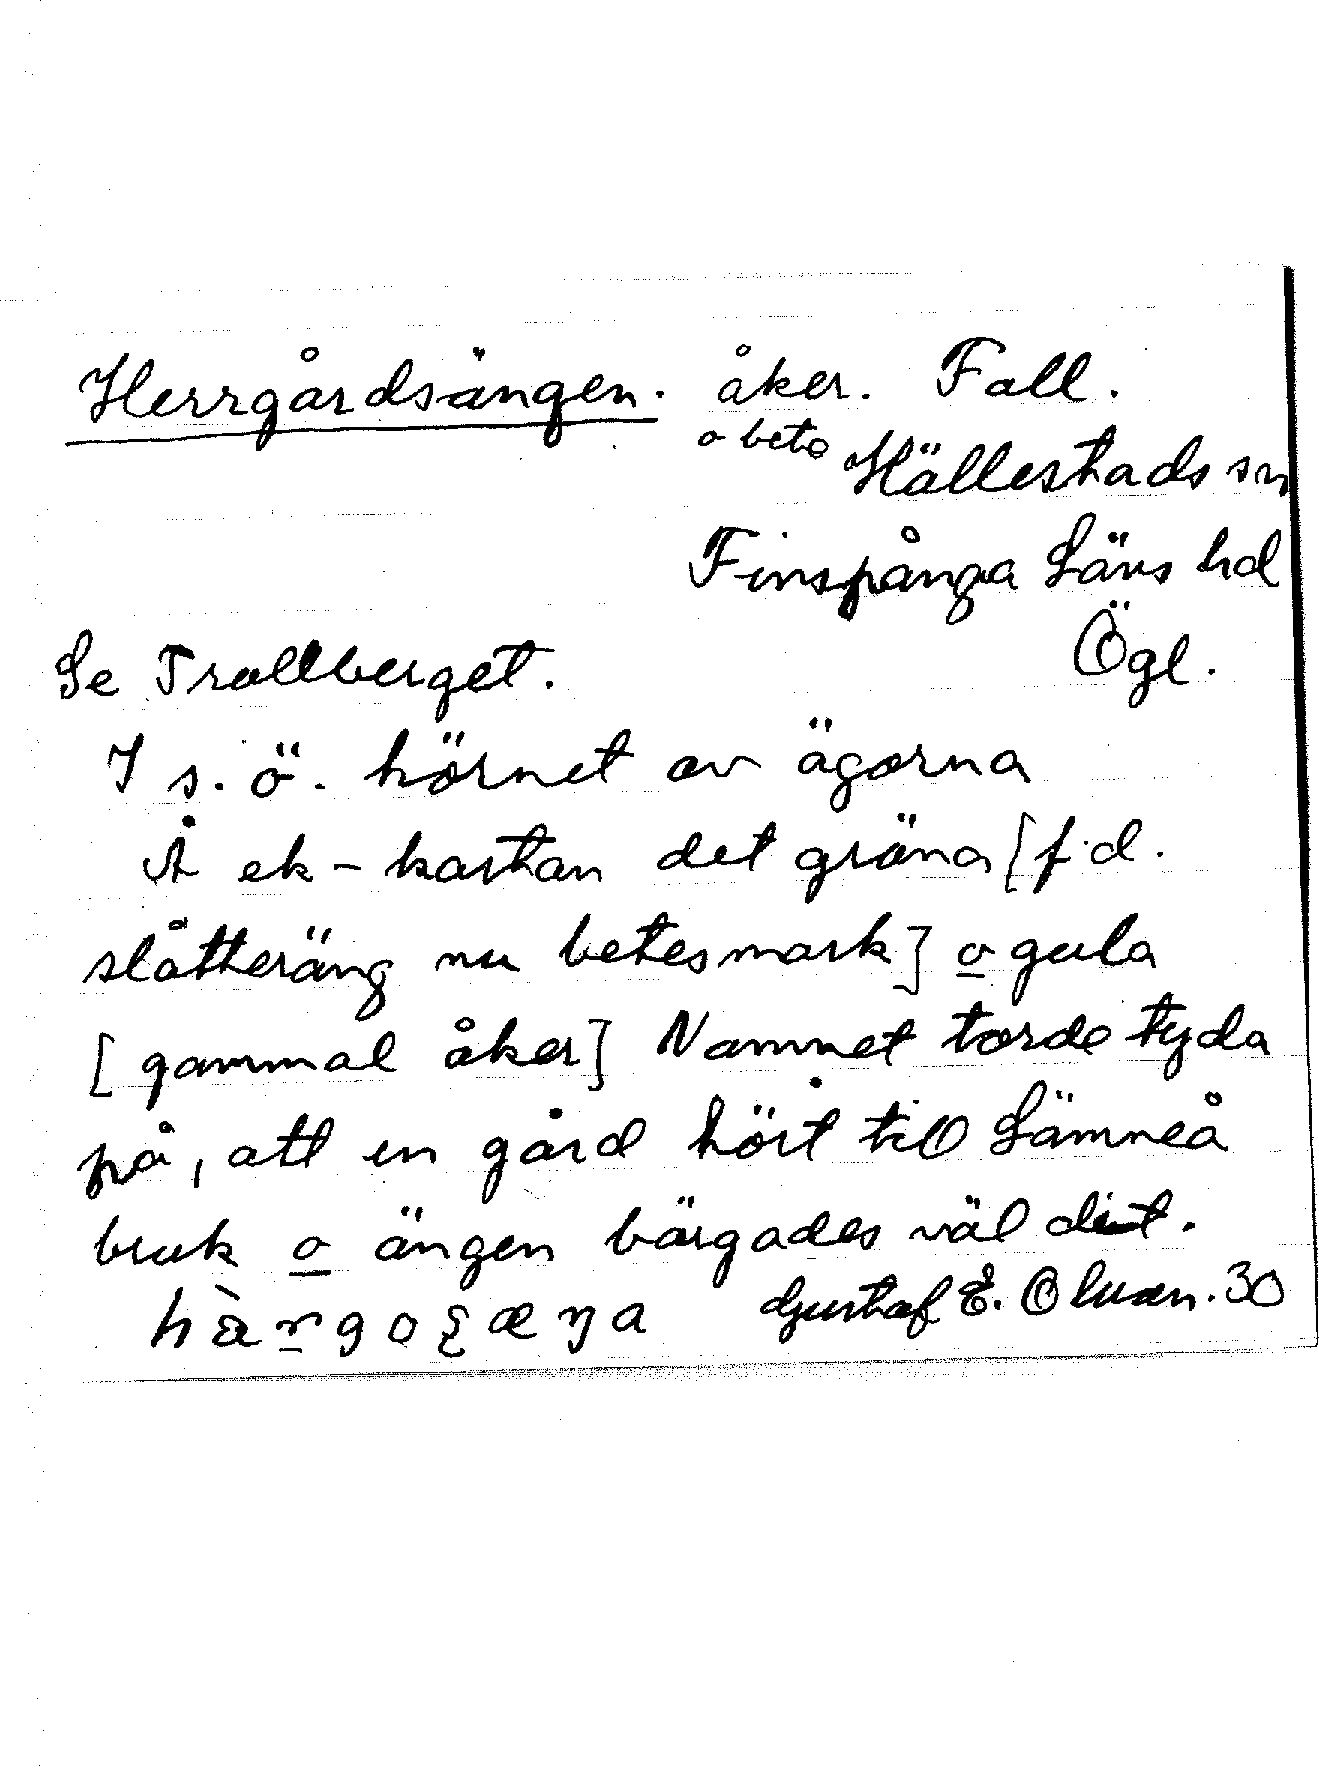 Herrgårdsängen. åker. Fall.
o bete Hällestads sn
Finspånga Läns hd
Se Trollberget. Ögl.
I s.ö. hörnet av ägorna
Å ek-kartan det gröna [f.d.
slåtteräng nu betesmark] o gula
[gammal åker] Namnet torde tyda
på, att en gård hört till Lämneå
bruk o ängen bärgades väl dit.
Gustaf E. Olsson. 30